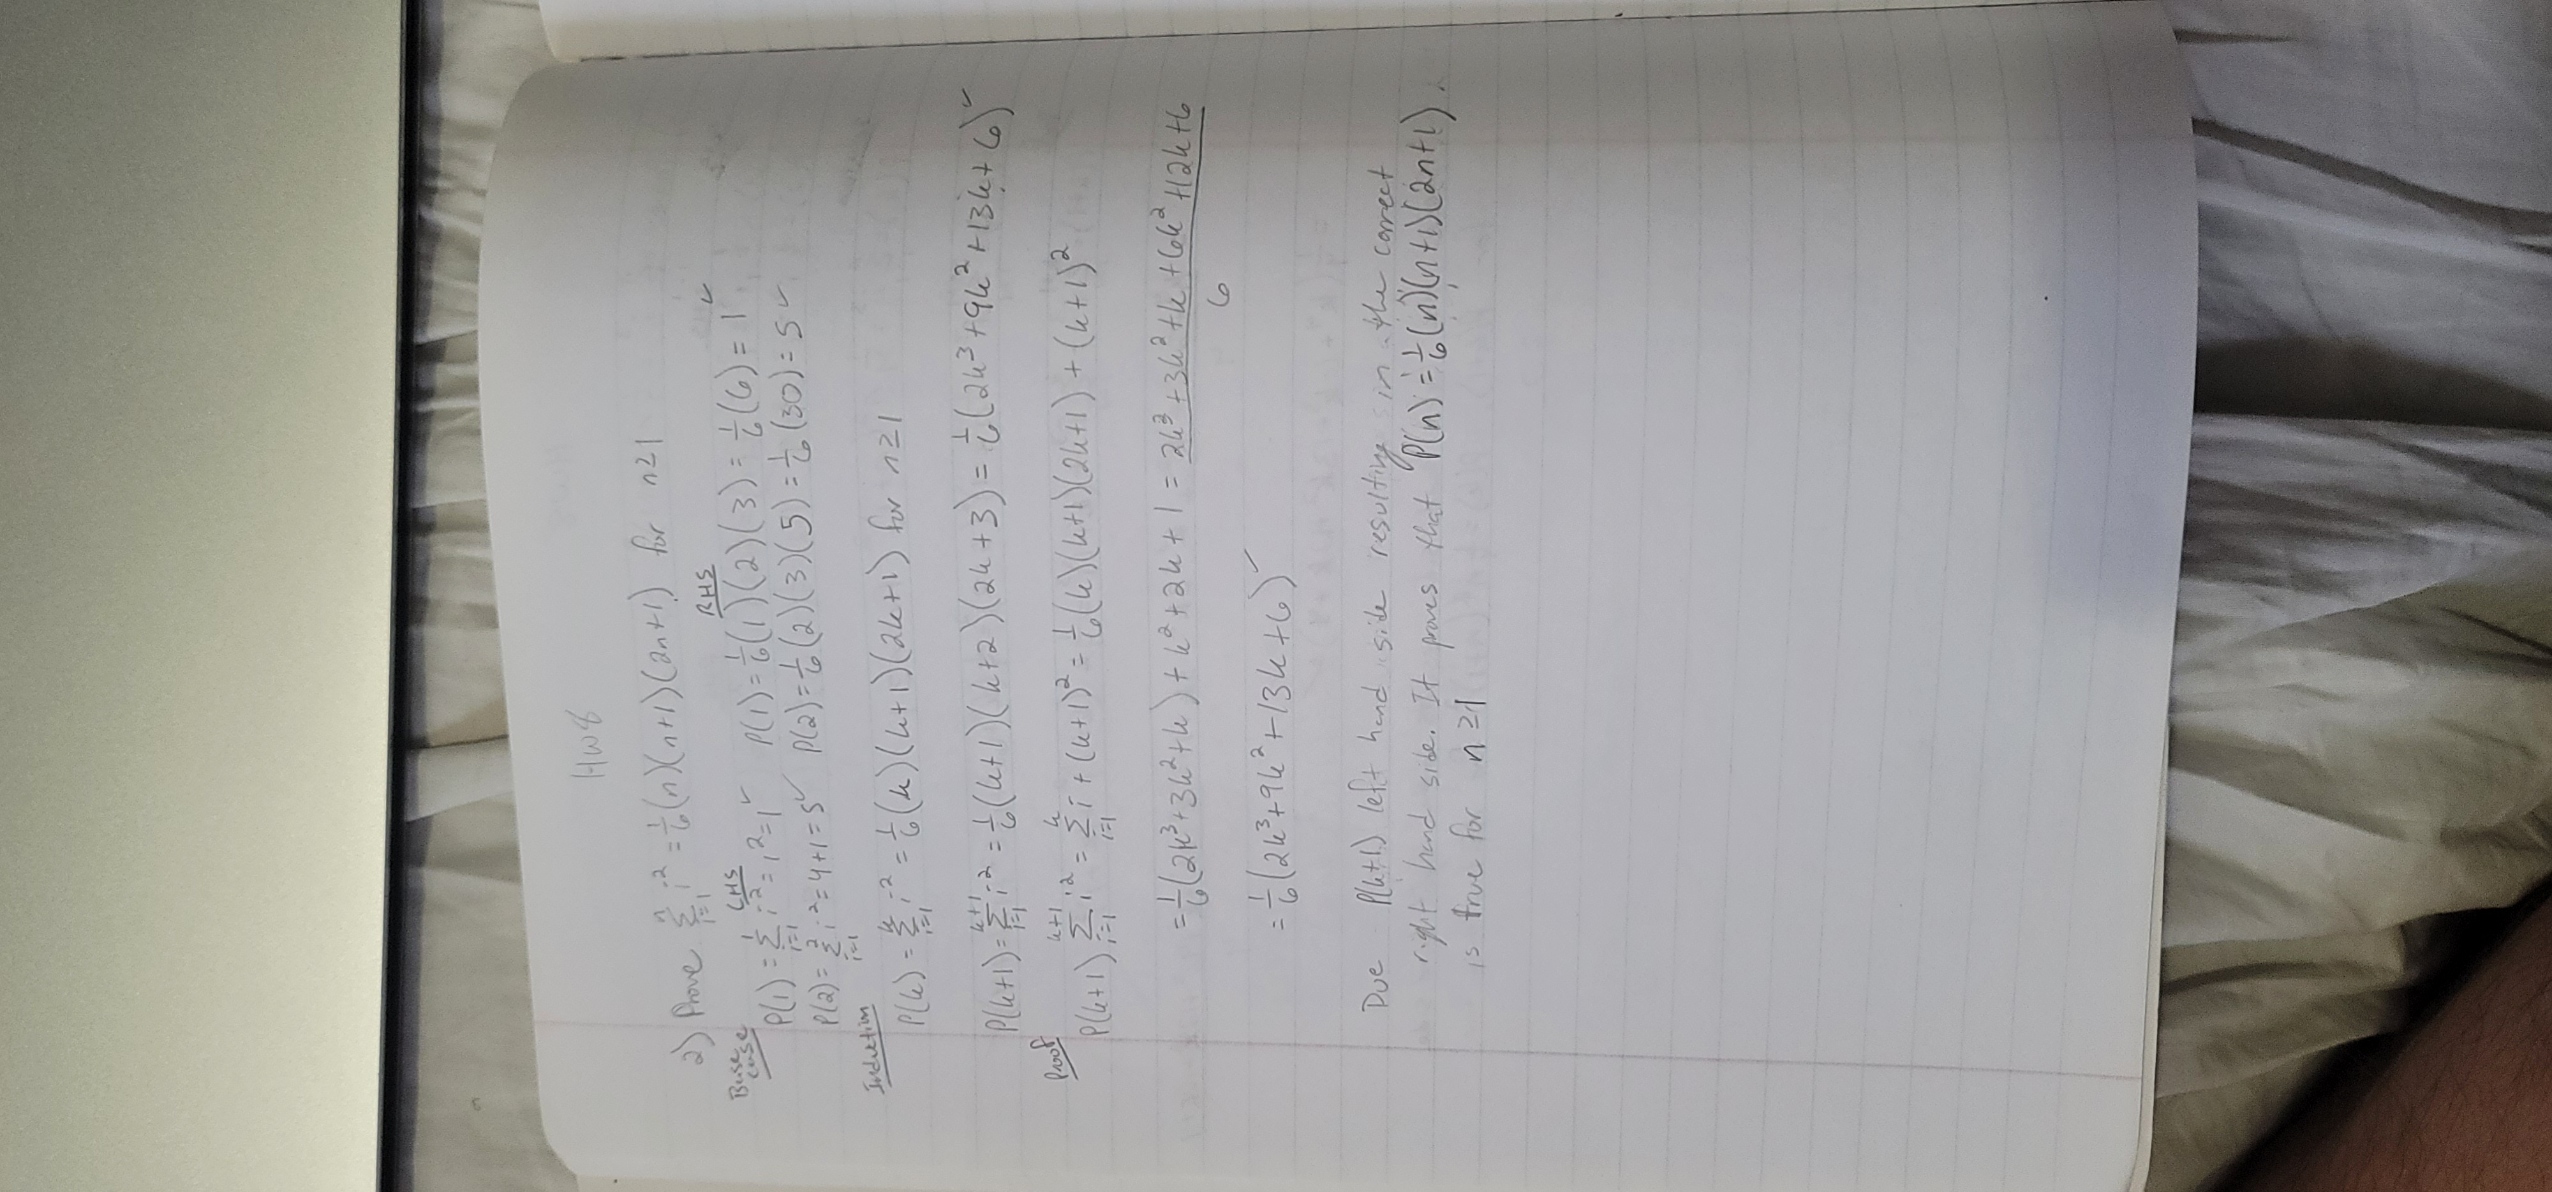 HW8
2) Prove ∑_{i=1}^{n} i² = 1/6(n)(n+1)(2n+1) for n≥1
Base case
LHS RHS
P(1) = ∑_{i=1}^{1} i² = 1² = 1 ✓ P(1) = 1/6(1)(2)(3) = 1/6(6) = 1 ✓
P(2) = ∑_{i=1}^{2} i² = 4+1 = 5 ✓ P(2) = 1/6(2)(3)(5) = 1/6(30) = 5 ✓
Induction
P(k) = ∑_{i=1}^{k} i² = 1/6(k)(k+1)(2k+1) for n≥1
P(k+1) = ∑_{i=1}^{k+1} i² = 1/6(k+1)(k+2)(2k+3) = 1/6(2k³+9k²+13k+6) ✓
Proof
P(k+1) ∑_{i=1}^{k+1} i² = ∑_{i=1}^{k} i + (k+1)² = 1/6(k)(k+1)(2k+1) + (k+1)²
= 1/6(2k³+3k²+k) + k²+2k+1 = (2k³+3k²+k+6k²+12k+6)/6
= 1/6(2k³+9k²+13k+6) ✓
Due P(k+1) left hand side resulting in the correct
right hand side. It proves that P(n) = 1/6(n)(n+1)(2n+1).
is true for n≥1